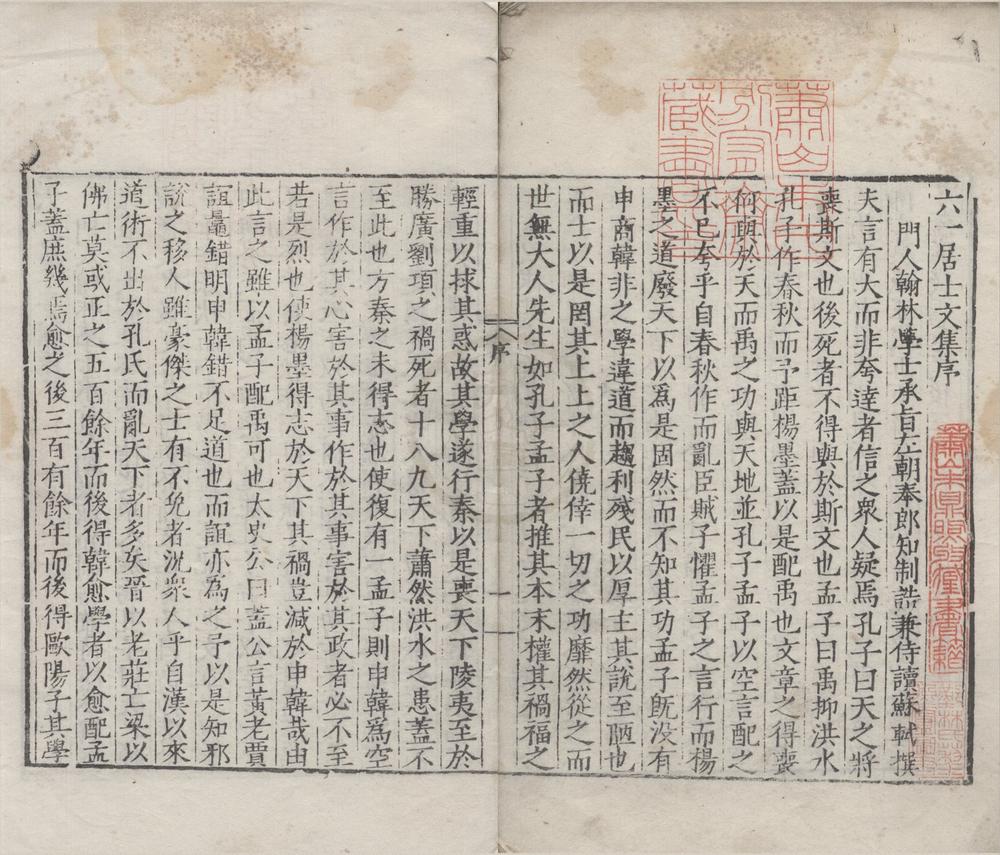 六一居士文集序
門人翰林學士承旨左朝奉郎知制誥兼侍讀蘇軾撰
夫言有大而非夸達者信之衆人疑焉孔子曰天之將
喪斯文也後死者不得與於斯文也孟子曰禹抑洪水
孔子作春秋而予距楊墨蓋以是配禹也文章之得喪
何與於天而禹之功與天地並孔子孟子以空言配之
不已夸乎自春秋作而亂臣賊子懼孟子之言行而楊
墨之道廢天下以爲是固然而不知其功孟子旣没有
申商韓非之學違道而趨利殘民以厚主其說至陋也
而士以是罔其上上之人僥倖一切之功靡然從之而
世無大人先生如孔子孟子者推其本末權其禍福之
序
一
輕重以捄其惑故其學遂行秦以是喪天下陵夷至於
勝廣劉項之禍死者十八九天下蕭然洪水之患蓋不
至此也方秦之未得志也使復有一孟子則申韓爲空
言作於其心害於其事作於其事害於其政者必不至
若是烈也使楊墨得志於天下其禍豈減於申韓哉由
此言之雖以孟子配禹可也太史公曰蓋公言黃老賈
誼鼂錯明申韓錯不足道也而誼亦為之予以是知邪
說之移人雖豪傑之士有不免者況衆人乎自漢以來
道術不出於孔氏而亂天下者多矣晉以老莊亡梁以
佛亡莫或正之五百餘年而後得韓愈學者以愈配孟
子蓋庶幾焉愈之後三百有餘年而後得歐陽子其學